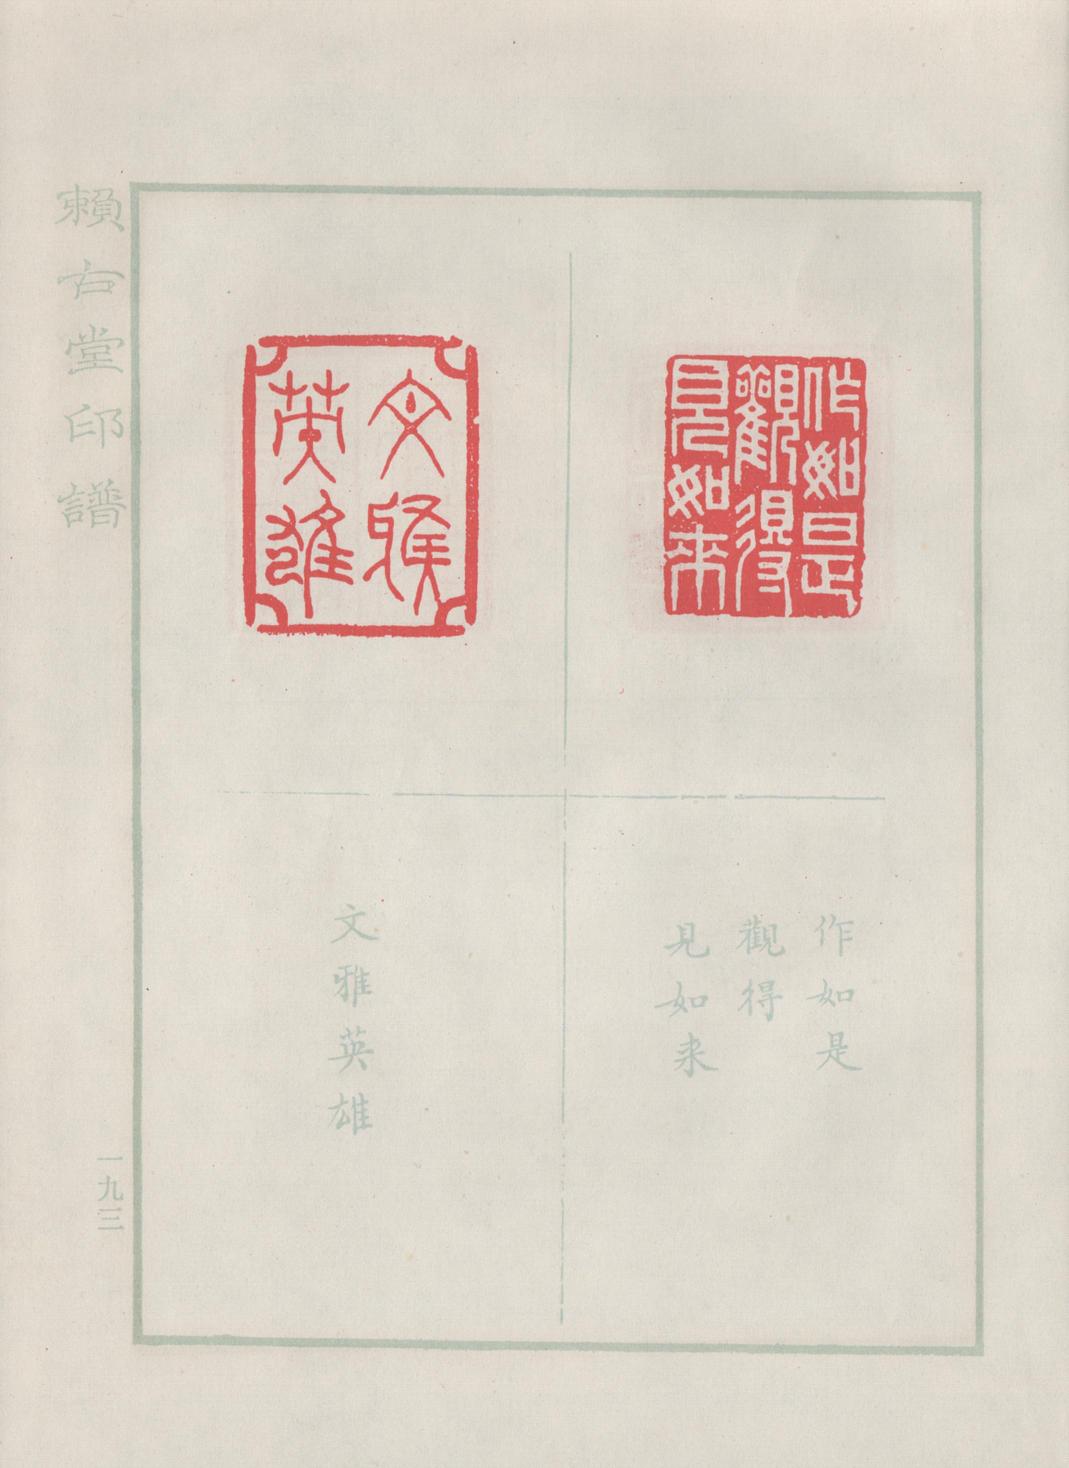 作如是
觀得
見如来
文雅英雄
作如是
觀得
見如来
文雅英雄
賴古堂印譜
一九三